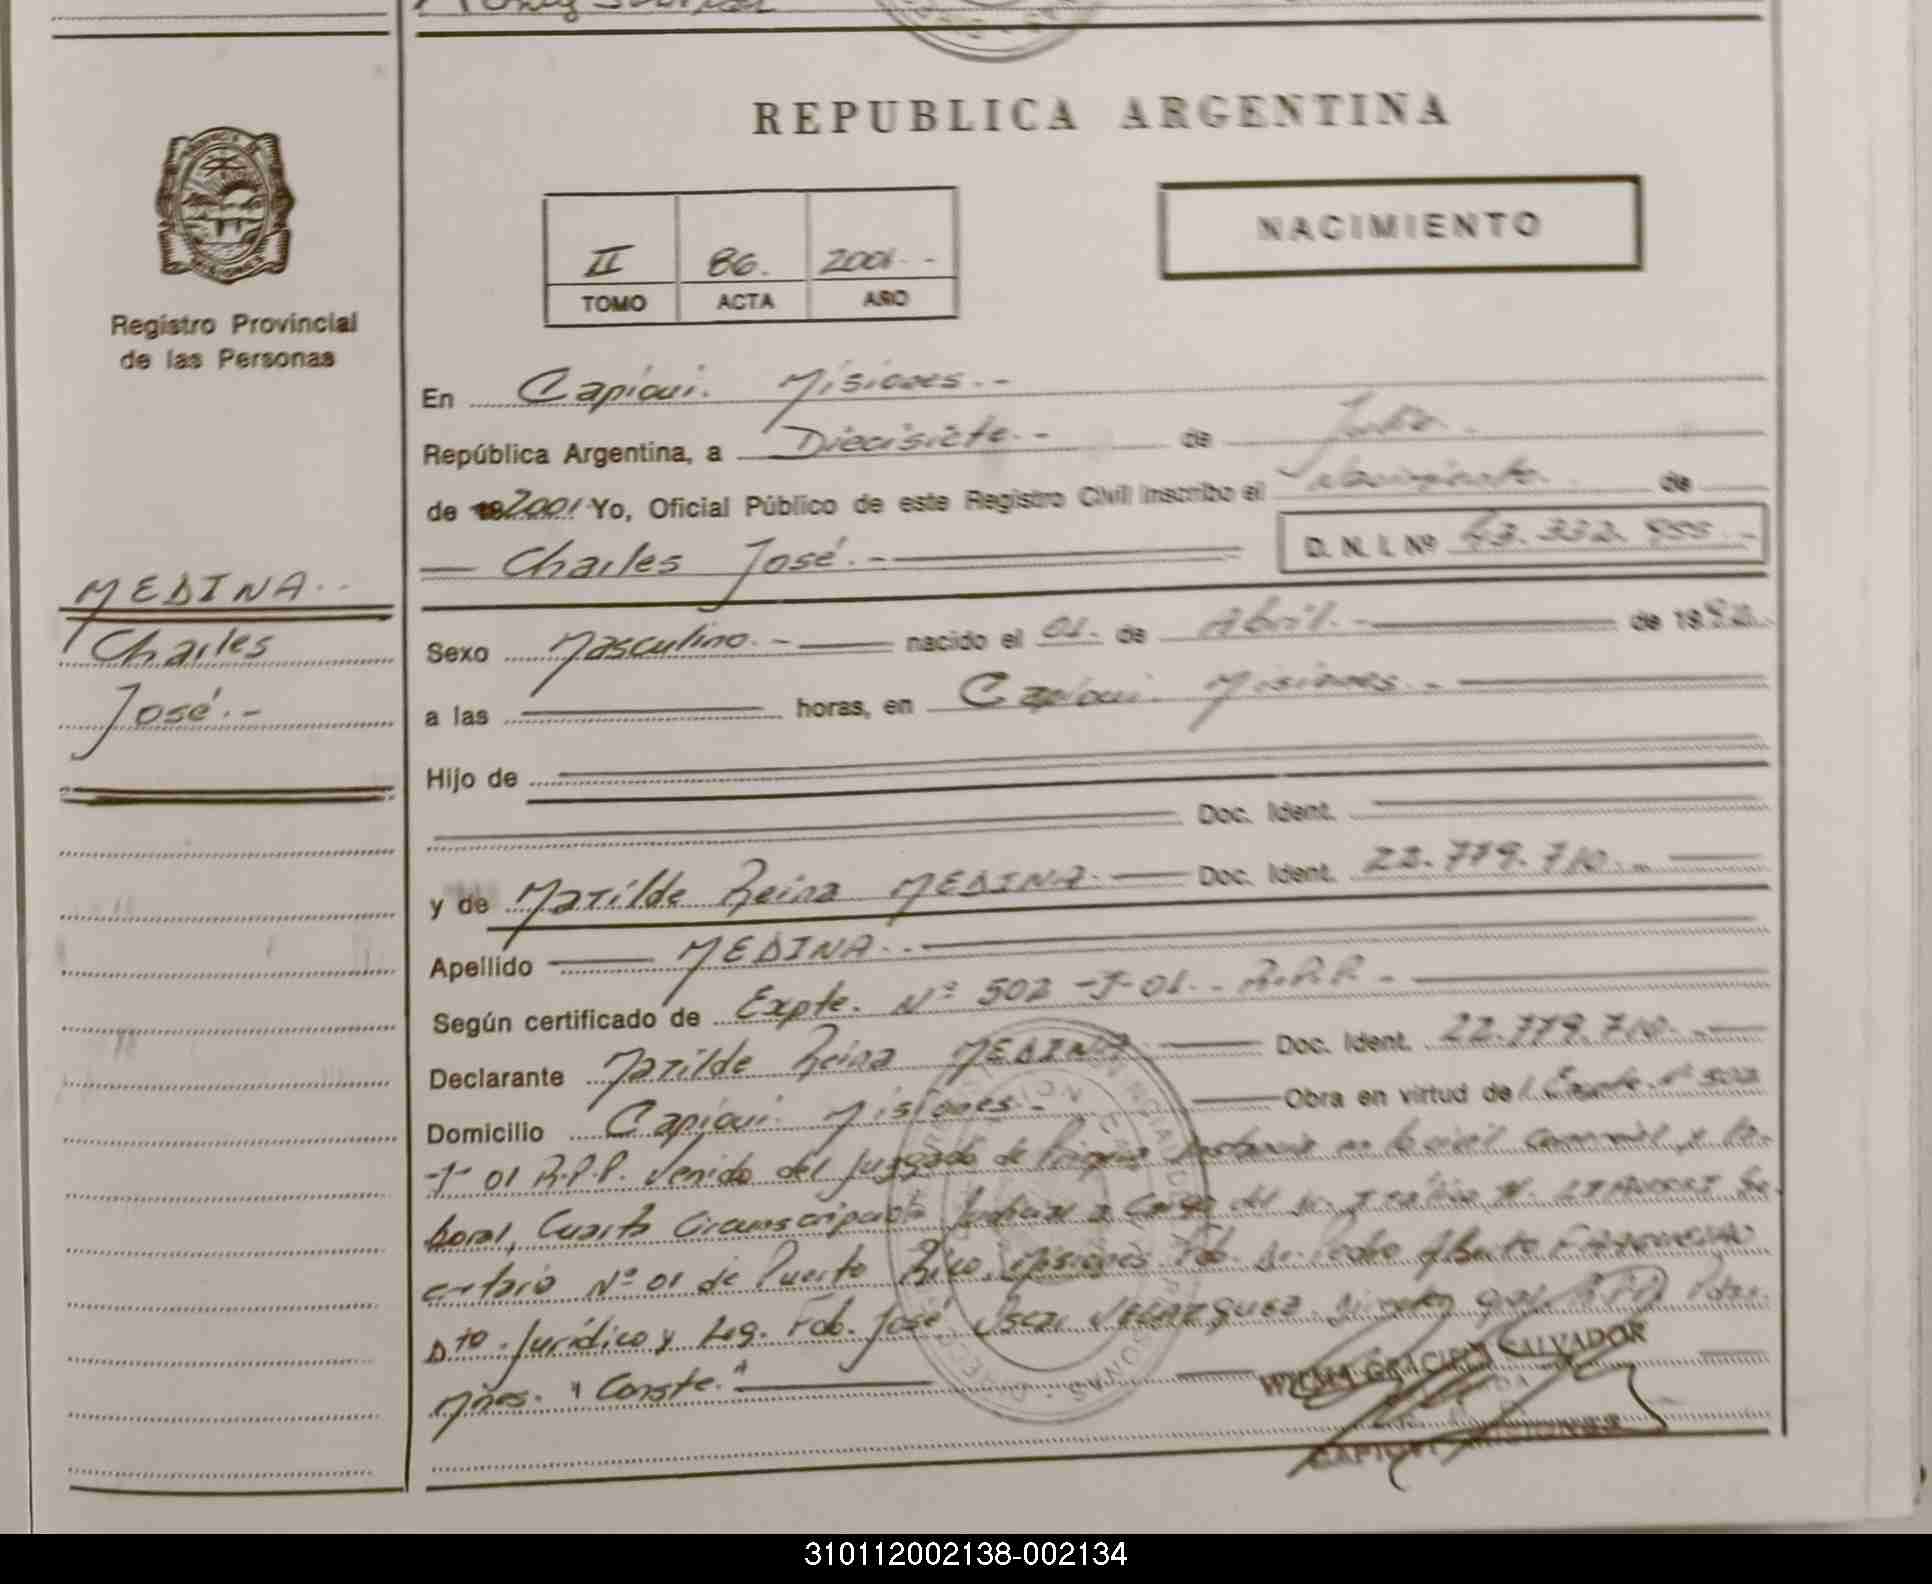 REPUBLICA ARGENTINA
NACIMIENTO
II 86. 2001.-
TOMO ACTA AÑO
Registro Provincial
de las Personas
En Capioui. Misiones.-
República Argentina, a Diecisiete.- de Julio.
de 2001 Yo, Oficial Público de este Registro Civil inscribo el Nacimiento. de
Charles José.- D. N. I. Nº
MEDINA..
Charles
José.-
Sexo Masculino.- nacido el 01. de Abril.- de 19
a las horas, en Capioui. Misiones.-
Hijo de
Doc. Ident.
y de Matilde Reina MEDINA.- Doc. Ident. 22.779.710.-
Apellido MEDINA..
Según certificado de Expte. Nº 502 -J-01.. R.P.P.-
Declarante Matilde Reina MEDINA Doc. Ident. 22.779.710.-
Domicilio Capioui. Misiones.- Obra en virtud de Expte. Nº 502
-J- 01 R.P.P. Venido del Juzgado de Primera Instancia en lo civil comercial y la-
boral, Cuarta Circunscripción Judicial a cargo del Dr. Se-
cretario Nº 01 de Puerto Rico, Misiones. Fdo. Dr. Pedro Alberto
Dto. Jurídico y Leg. Fdo. José Oscar VELAZQUEZ. Director Gral. R.P.P. Pdas.
Mnes. "Conste."
WILMA GRACIELA SALVADOR
CAPIOVI MISIONES
310112002138-002134